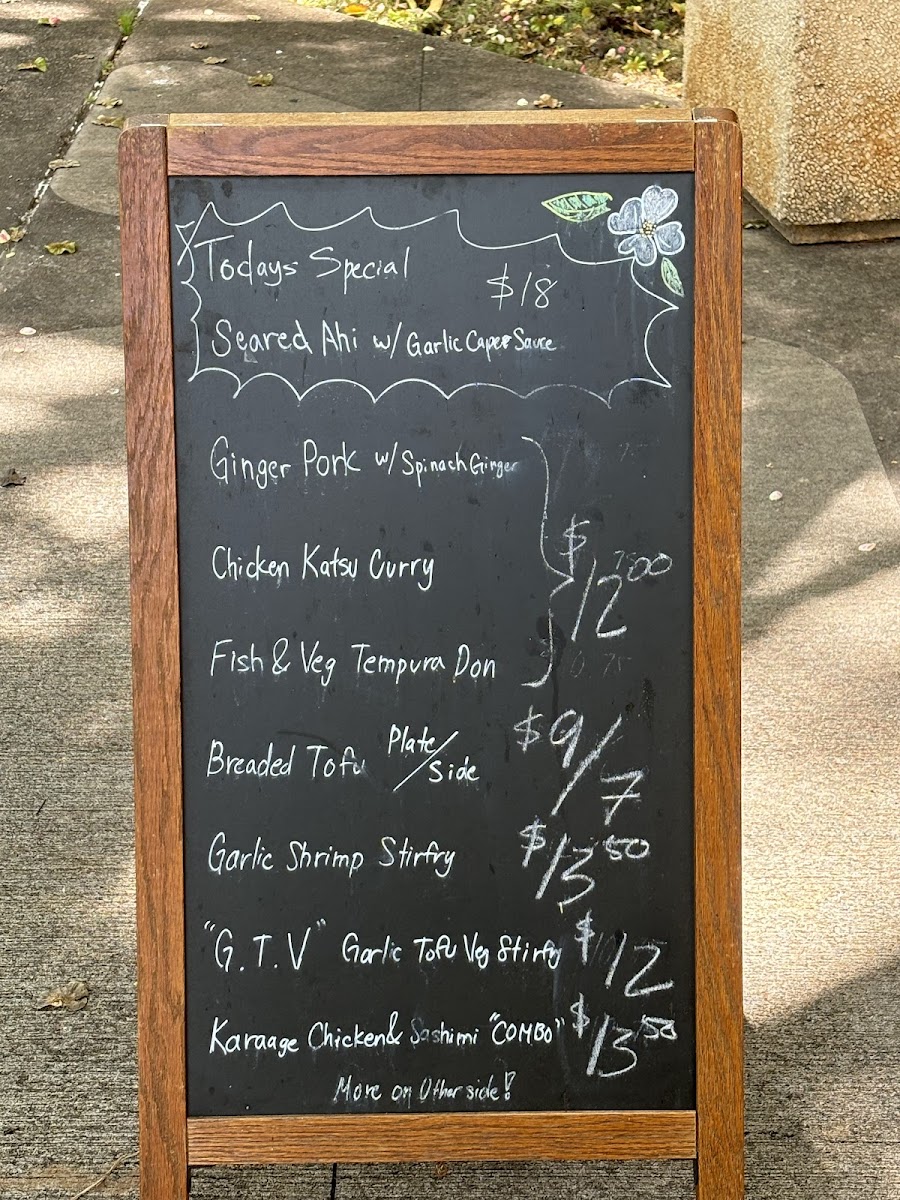 Todays Special
$18
Seared Ahi w/ Garlic Caper Sauce
Ginger Pork w/ Spinach Ginger
Chicken Katsu Curry
$12.00
Fish & Veg Tempura Don
Breaded Tofu Plate/Side $9/7
Garlic Shrimp Stirfry $13.50
"G.T.V" Garlic Tofu Veg Stirfry $12
Karaage Chicken & Sashimi "COMBO" $13.50
More on Other side!